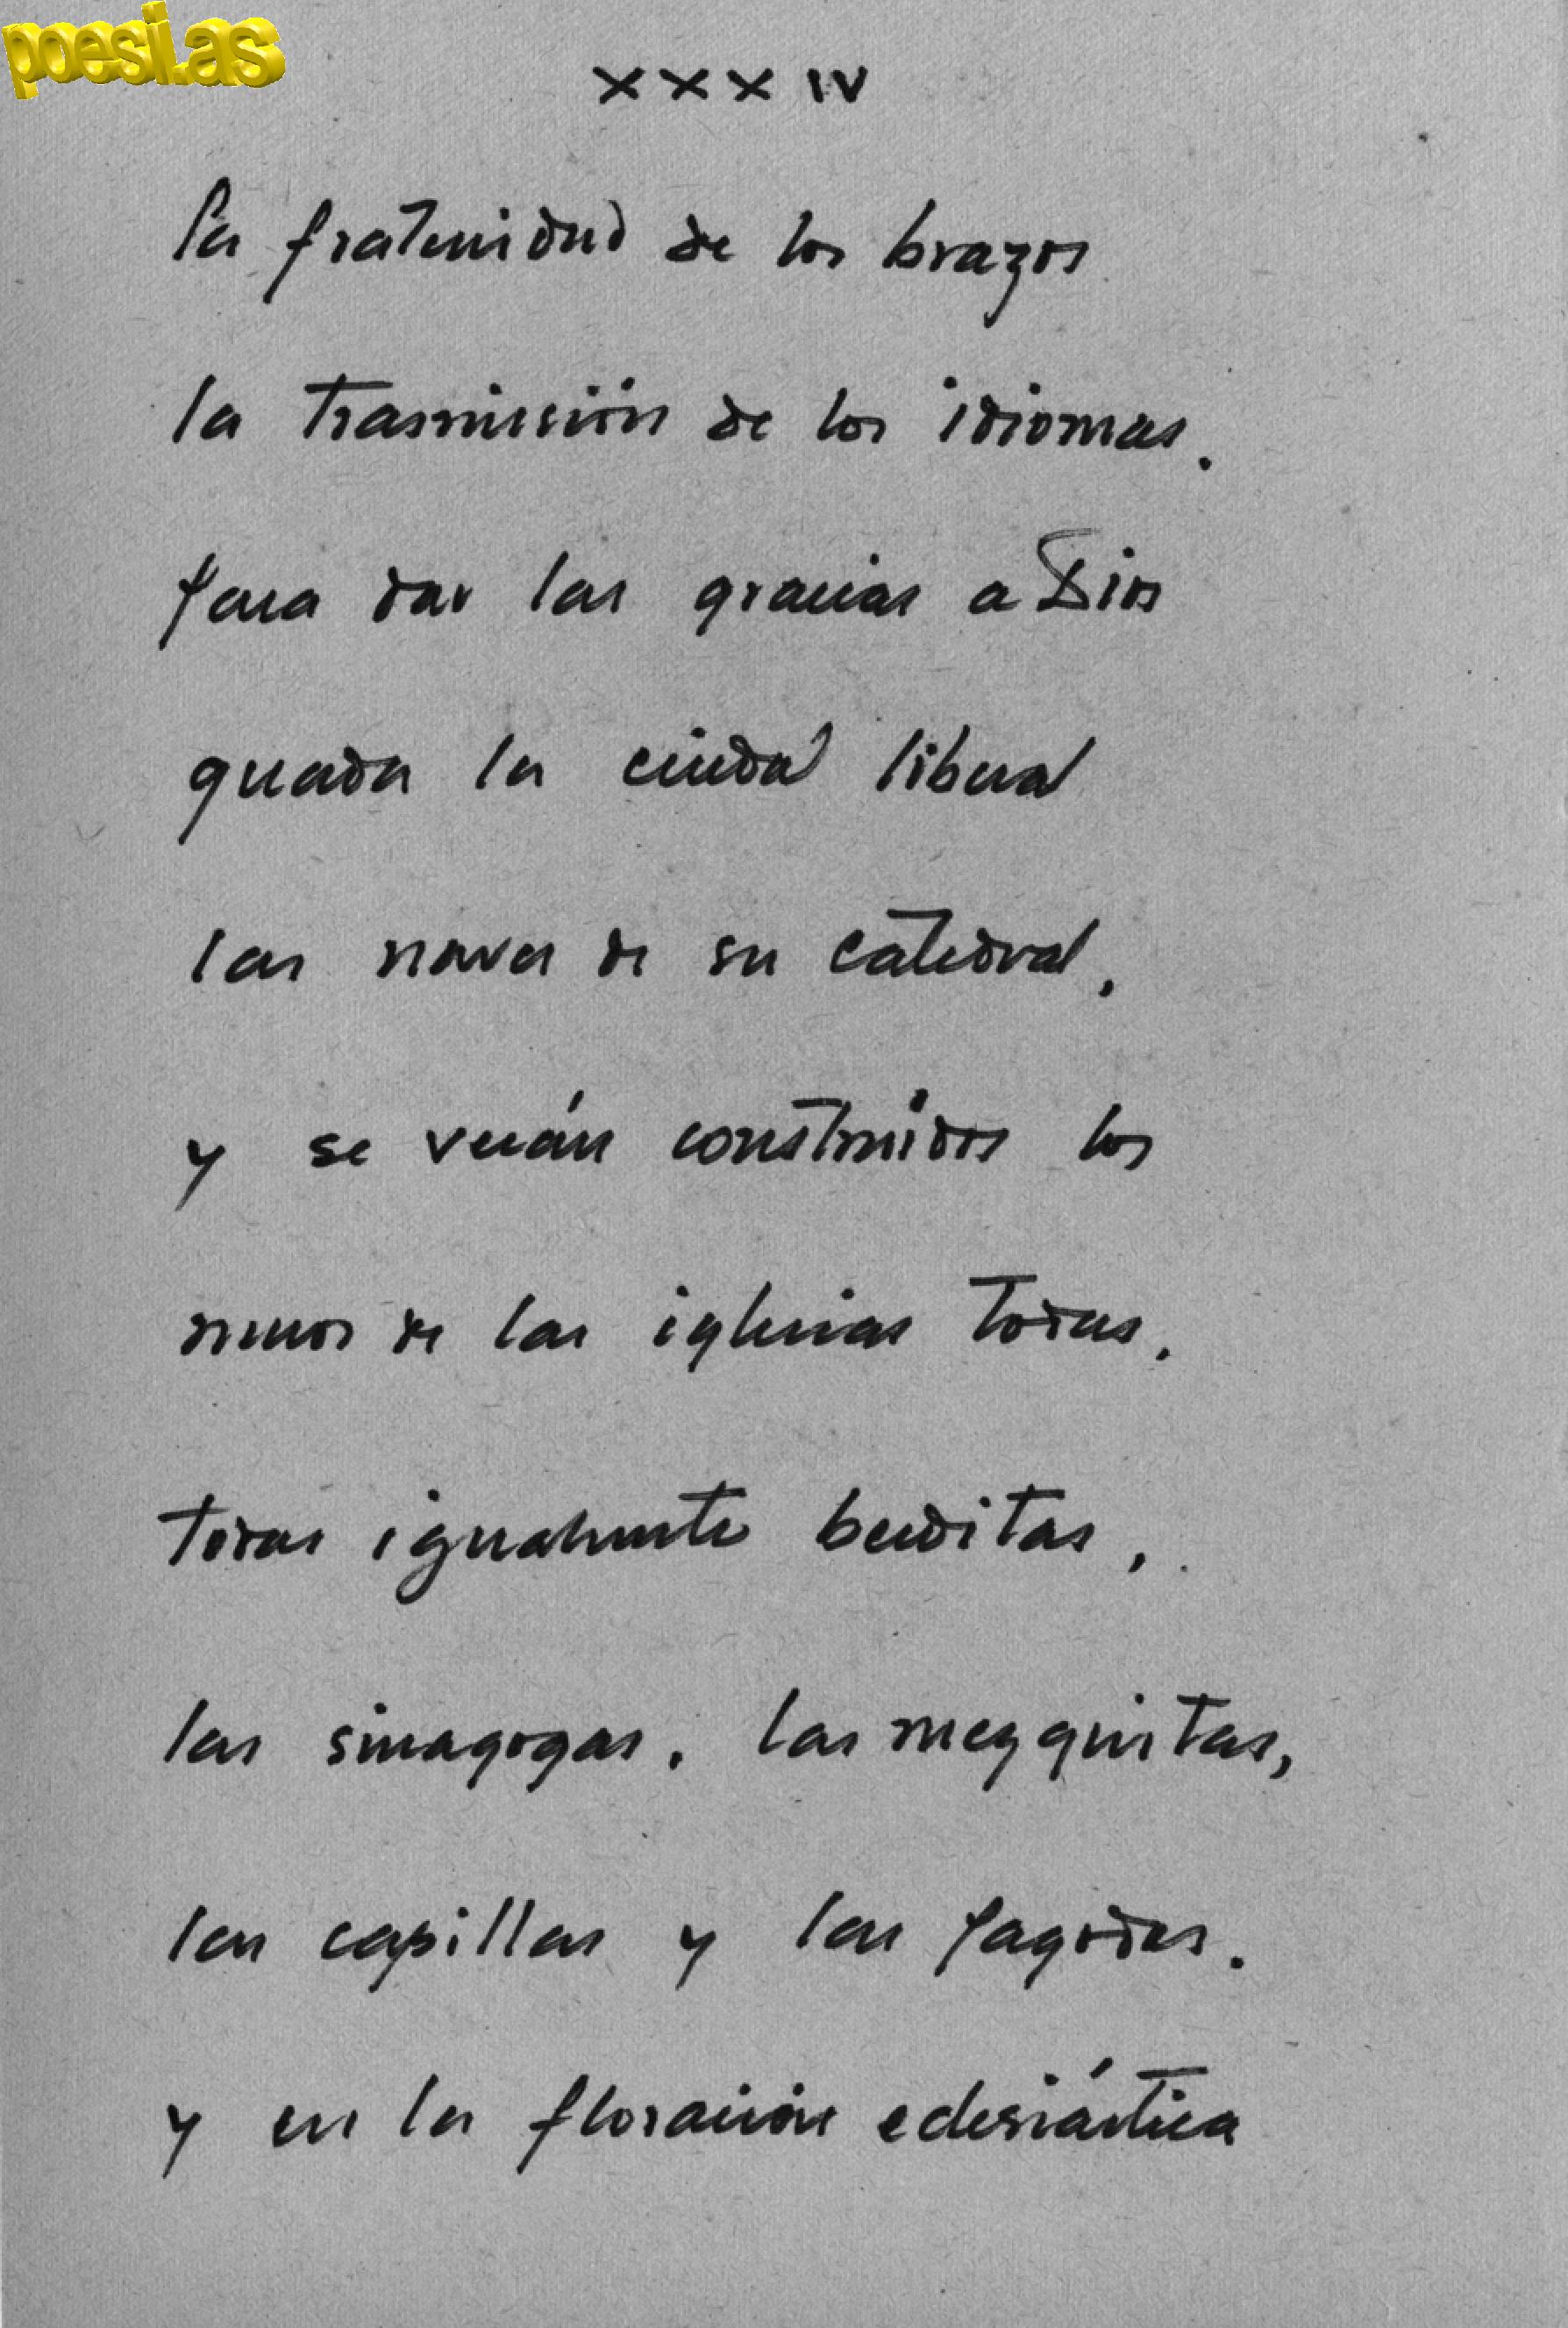 poesi.as
XXXIV
la fraternidad de los brazos
la trasmisión de los idiomas.
Para dar las gracias a Dios
guarda la ciudad liberal
las naves de su catedral,
y se verán construídos los
muros de las iglesias todas,
todas igualmente benditas,
las sinagogas, las mezquitas,
las capillas y las pagodas.
y en la floración eclesiástica